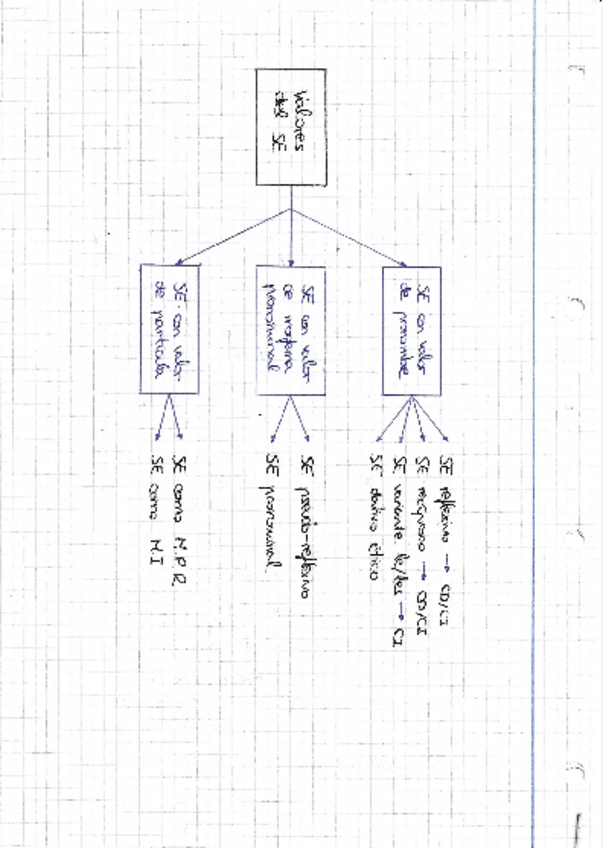 Valores
del SE
SE con valor
de pronombre
SE reflexivo → CD/CI
SE recíproco → CD/CI
SE variante le/les → CI
SE dativo ético
SE con valor
de morfema
pronominal
SE pseudo-reflexivo
SE pronominal
SE con valor
de partícula
SE como M.P.R.
SE como M.I